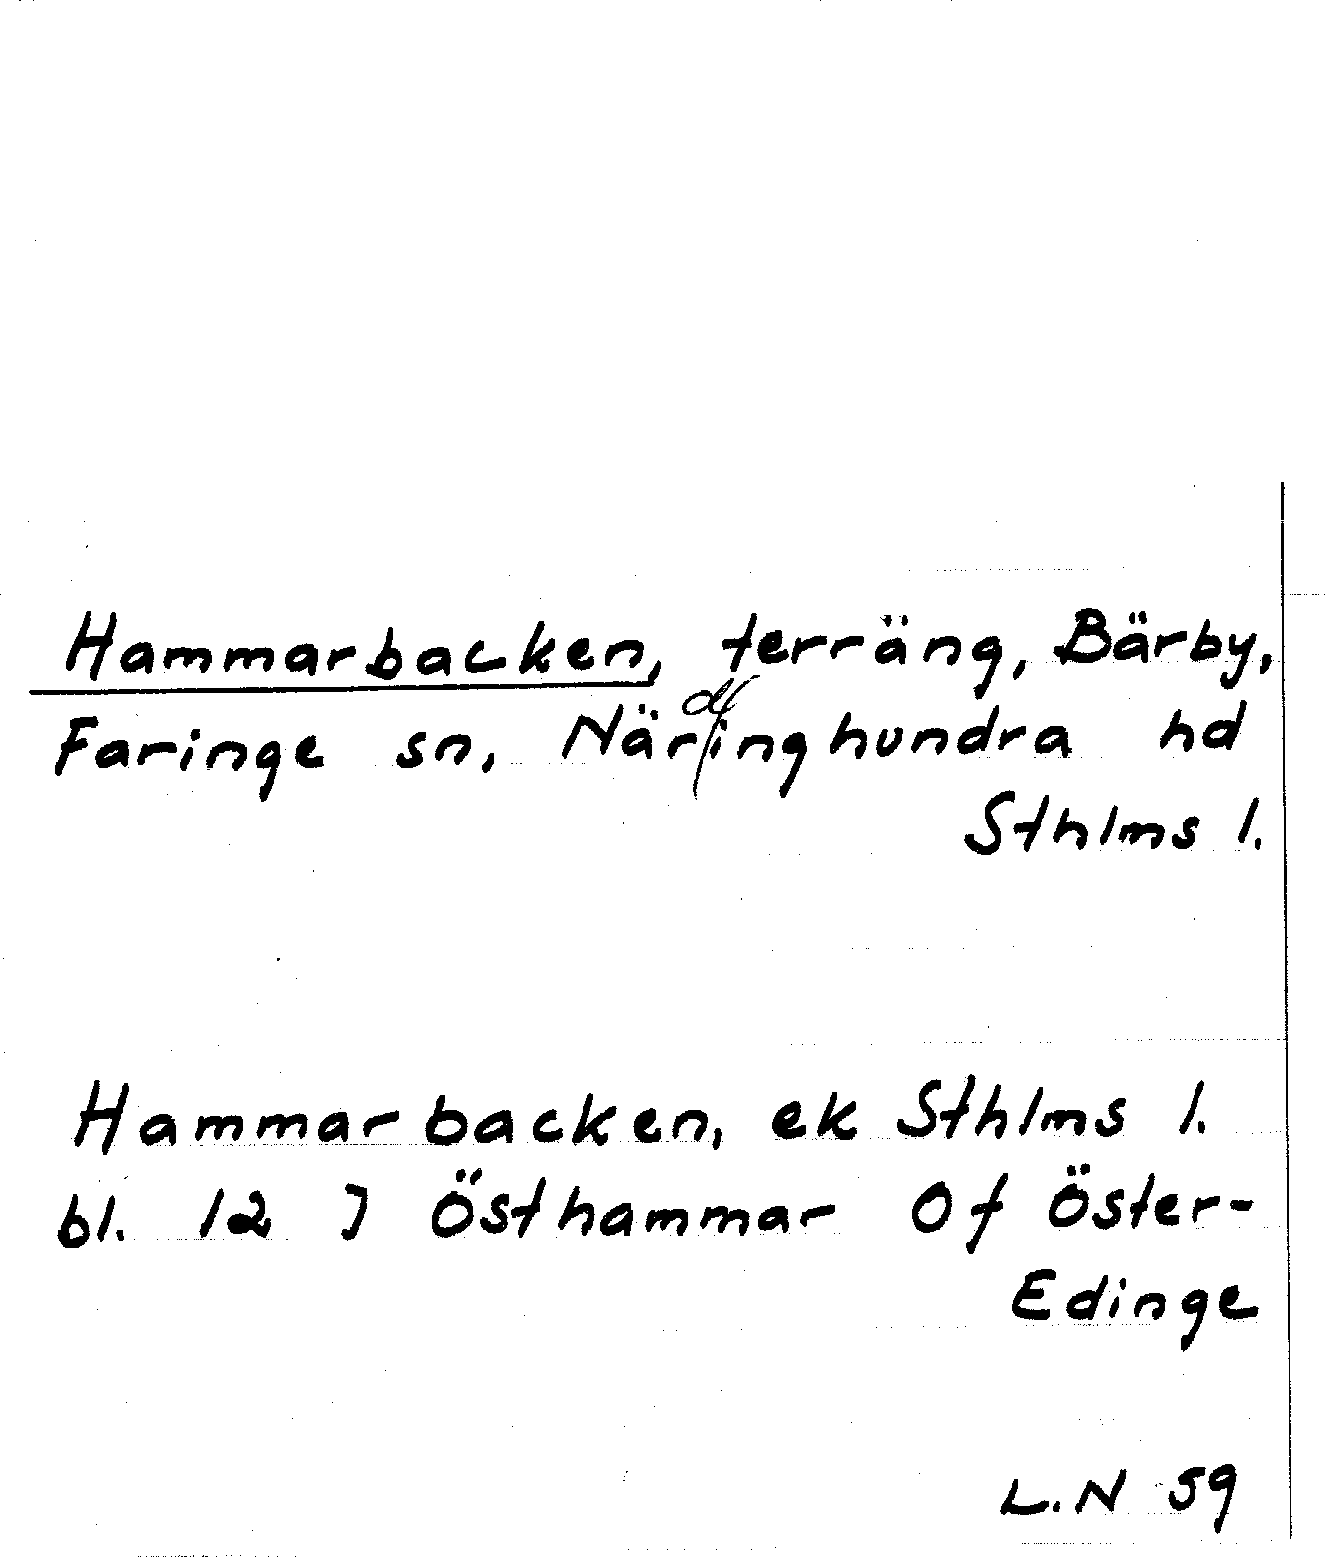 Hammarbacken, terräng, Bärby,
Faringe sn, Närdinghundra hd
Sthlms l.
Hammarbacken, ek Sthlms l.
bl. 12 J Östhammar Of Öster-
Edinge
L.N 59